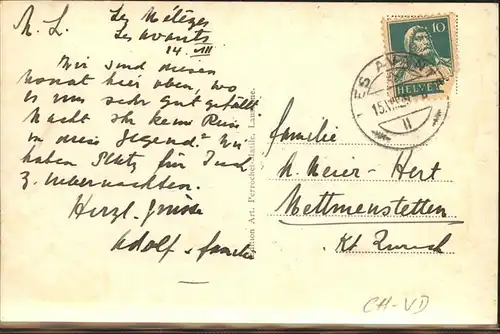 M. L.
Les Mélèzes
Les Avants
14. VIII
Wir sind diesen
Monat hier oben, wo
es uns sehr gut gefällt
Macht ihr keine Reise
in diese Gegend? Wir
haben Platz für Euch
z. uebernachten.
Herzl. Grüsse
Adolf & Familie
Edition Art. Perrochet-Matile, Lausanne.
10
HELVETIA
LES AVANTS
15.VIII
II
Familie
Meier-Hert
Mettmenstetten
Kt. Zürich
CH-VD